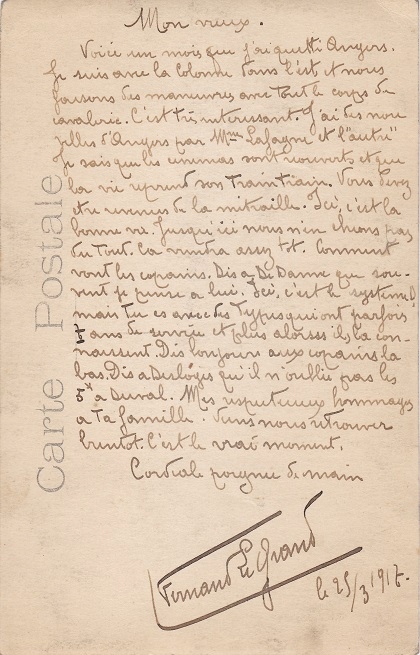 Mon vieux.
Voici un mois que j'ai quitté Angers.
Je suis avec la Colonne dans l'est et nous
faisons des manœuvres avec tout le corps de
cavalerie. C'est très interessant. J'ai des nou
velles d'Angers par Mme Lafagne et l'"autre"
Je sais que les cinemas sont rouverts et que
la vie reprend son traintrain. Vous devez
etre revenus de la mitraille. Ici, c'est la
bonne vie. Jusqu'ici nous n'en chions pas
du tout. Ca viendra assez tot. Comment
vont les copains. Dis a De Dame que sou-
vent je pense a lui. Ici, c'est le systeme
mais tu es avec des types qui ont parfois
ans de service et plus alors ils la con-
naissent. Dis bonjour aux copains la
bas. Dis a qu'il n'oublie pas les
5 a Duval. Mes respectueux hommages
a ta famille. nous retrouver
bientot. C'est le vrai moment.
Cordiale poignee de main
Fernand Le Grand
le 25/3 1917.
Carte Postale